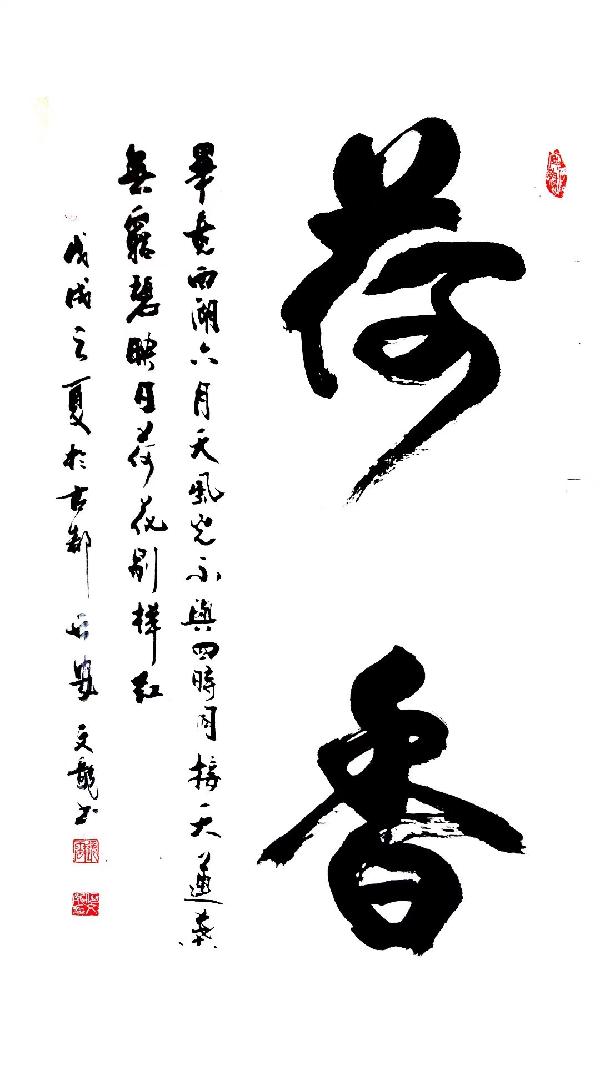 荷香
畢竟西湖六月天風光不與四時同接天蓮葉
無窮碧映日荷花別樣紅
戊戌之夏於古都長安文龍书